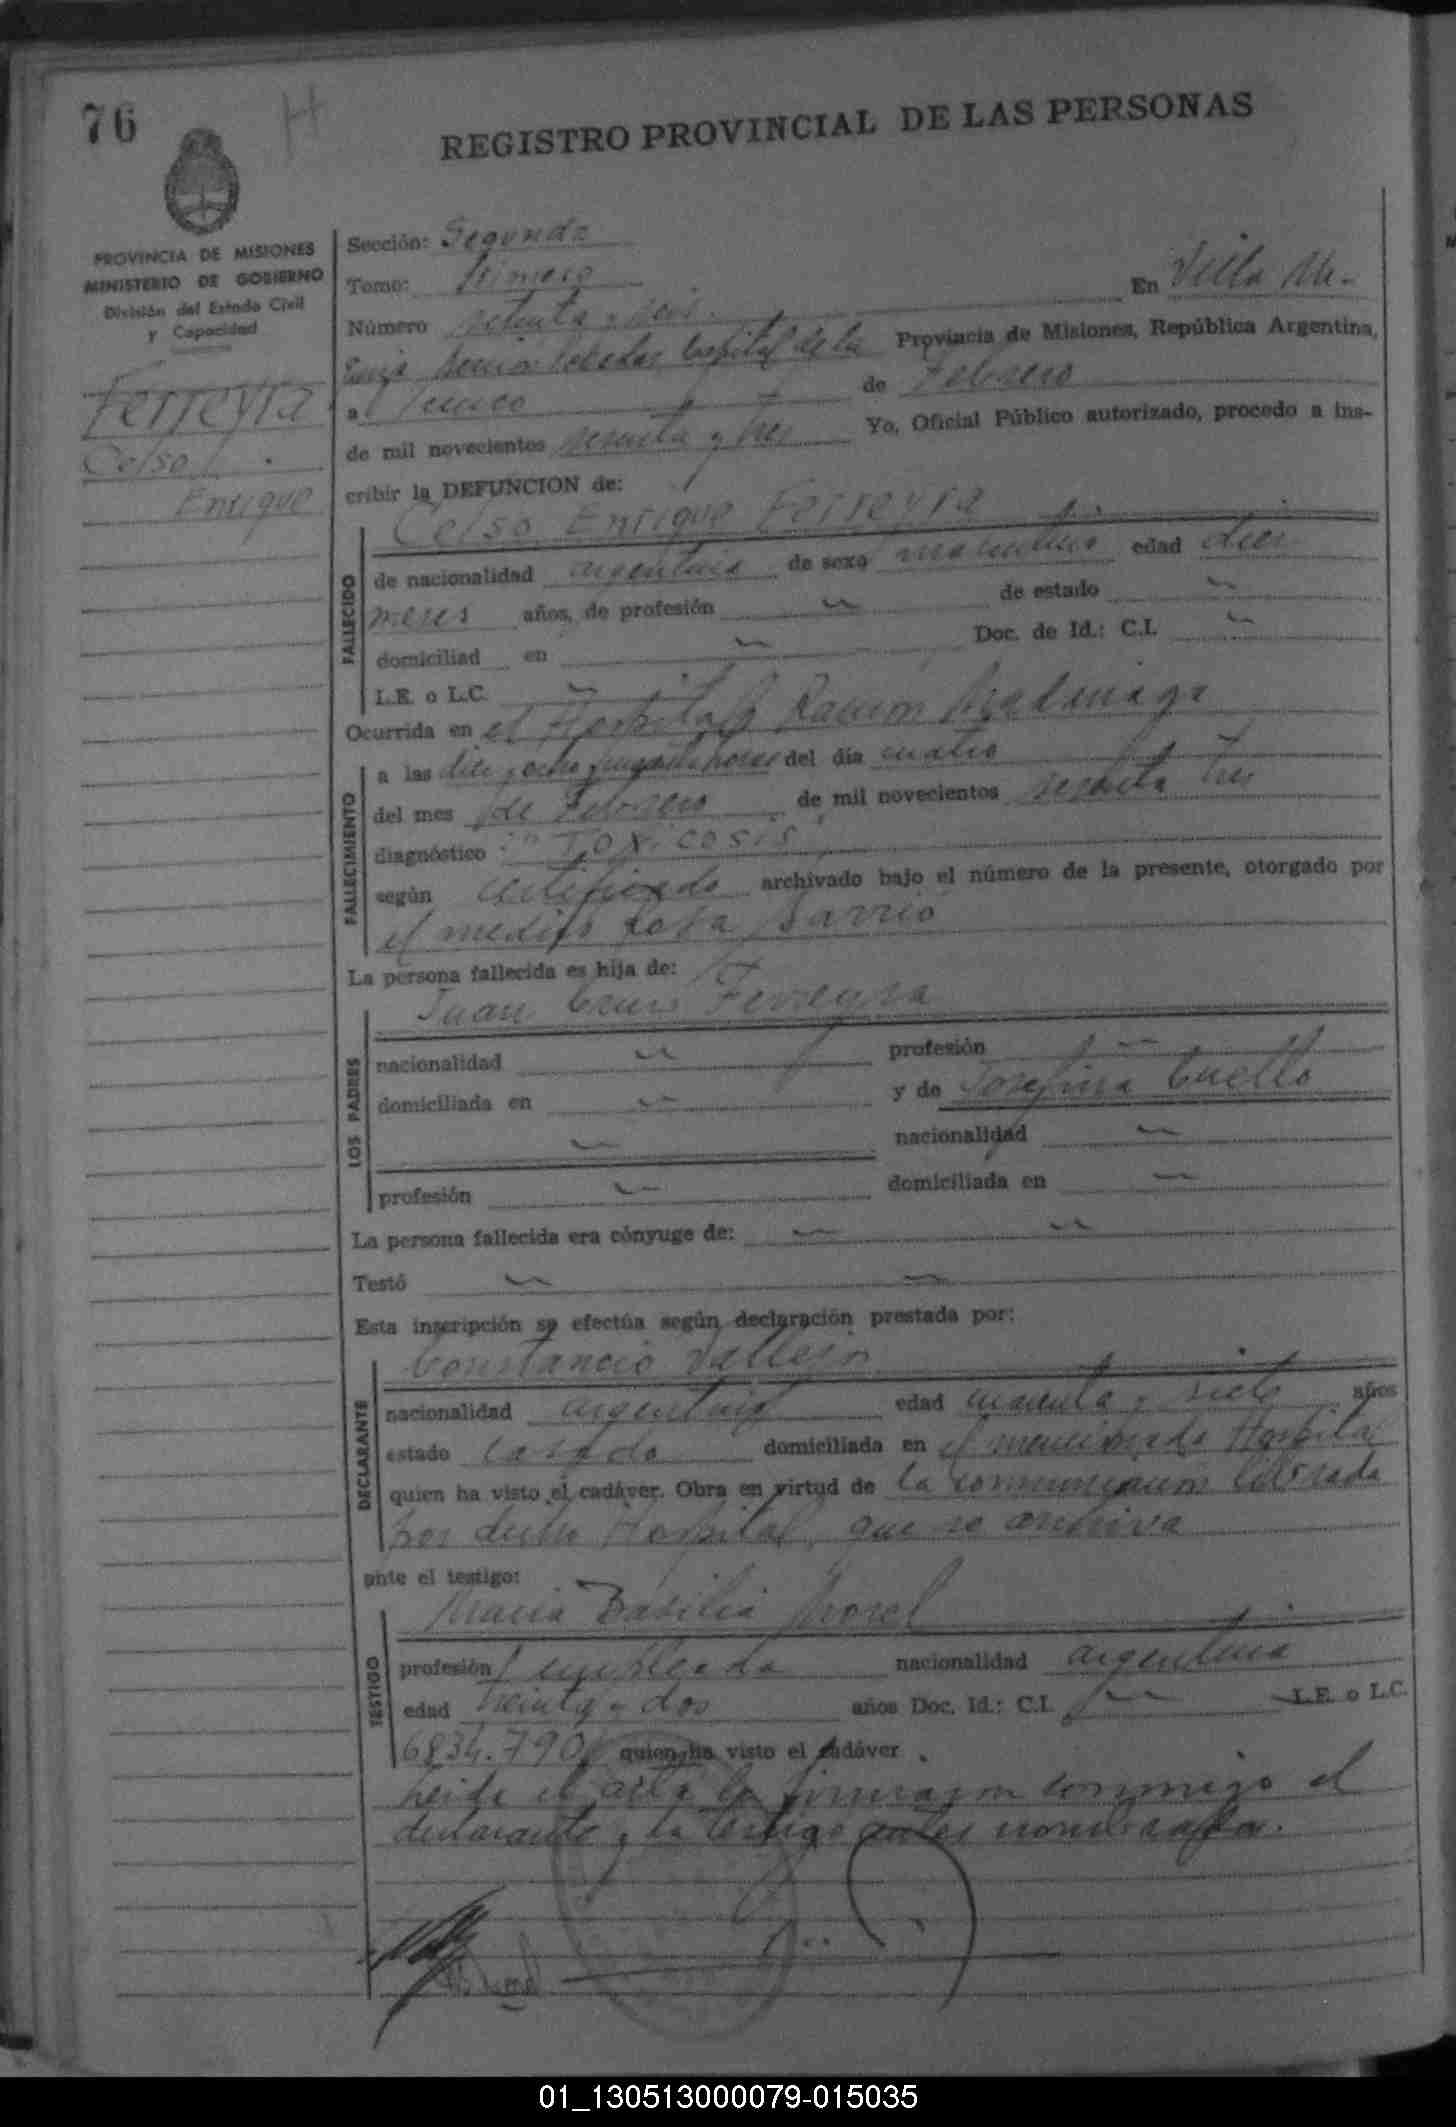 76 H
REGISTRO PROVINCIAL DE LAS PERSONAS
PROVINCIA DE MISIONES
MINISTERIO DE GOBIERNO
División del Estado Civil
y Capacidad
Ferreyra
Celso
Enrique
Sección: Segunda
Tomo: Primero En Villa
Número setenta y seis
Hospital de la Provincia de Misiones, República Argentina,
a cinco de Febrero
de mil novecientos sesenta y tres Yo, Oficial Público autorizado, procedo a ins-
cribir la DEFUNCION de:
Celso Enrique Ferreyra
FALLECIDO
de nacionalidad argentina de sexo masculino edad diez
meses años, de profesión de estado
domiciliad en Doc. de Id.: C.I.
L.E. o L.C.
Ocurrida en el Hospital Ramón Madariaga
FALLECIMIENTO
a las diez y ocho horas del día cuatro
del mes de Febrero de mil novecientos sesenta tres
diagnóstico : "Toxicosis"
según certificado archivado bajo el número de la presente, otorgado por
el medico Rosa Barrió
La persona fallecida es hija de:
Juan Cruz Ferreyra
LOS PADRES
nacionalidad profesión
domiciliada en y de Josefina Cuello
nacionalidad
profesión domiciliada en
La persona fallecida era cónyuge de:
Testó
Esta inscripción se efectúa según declaración prestada por:
Constancio Vallejo
DECLARANTE
nacionalidad argentina edad cuarenta y siete años
estado casado domiciliada en el mencionado Hospital
quien ha visto el cadáver. Obra en virtud de la comunicación librada
por dicho Hospital, que se archiva
ante el testigo:
Maria Basilia Morel
TESTIGO
profesión empleada nacionalidad argentina
edad treinta y dos años Doc. Id.: C.I. L.E. o L.C.
6834.790 quien ha visto el cadáver
Leida el acta la firmaron conmigo el
declarante y la testigo antes nombrados.
01_130513000079-015035